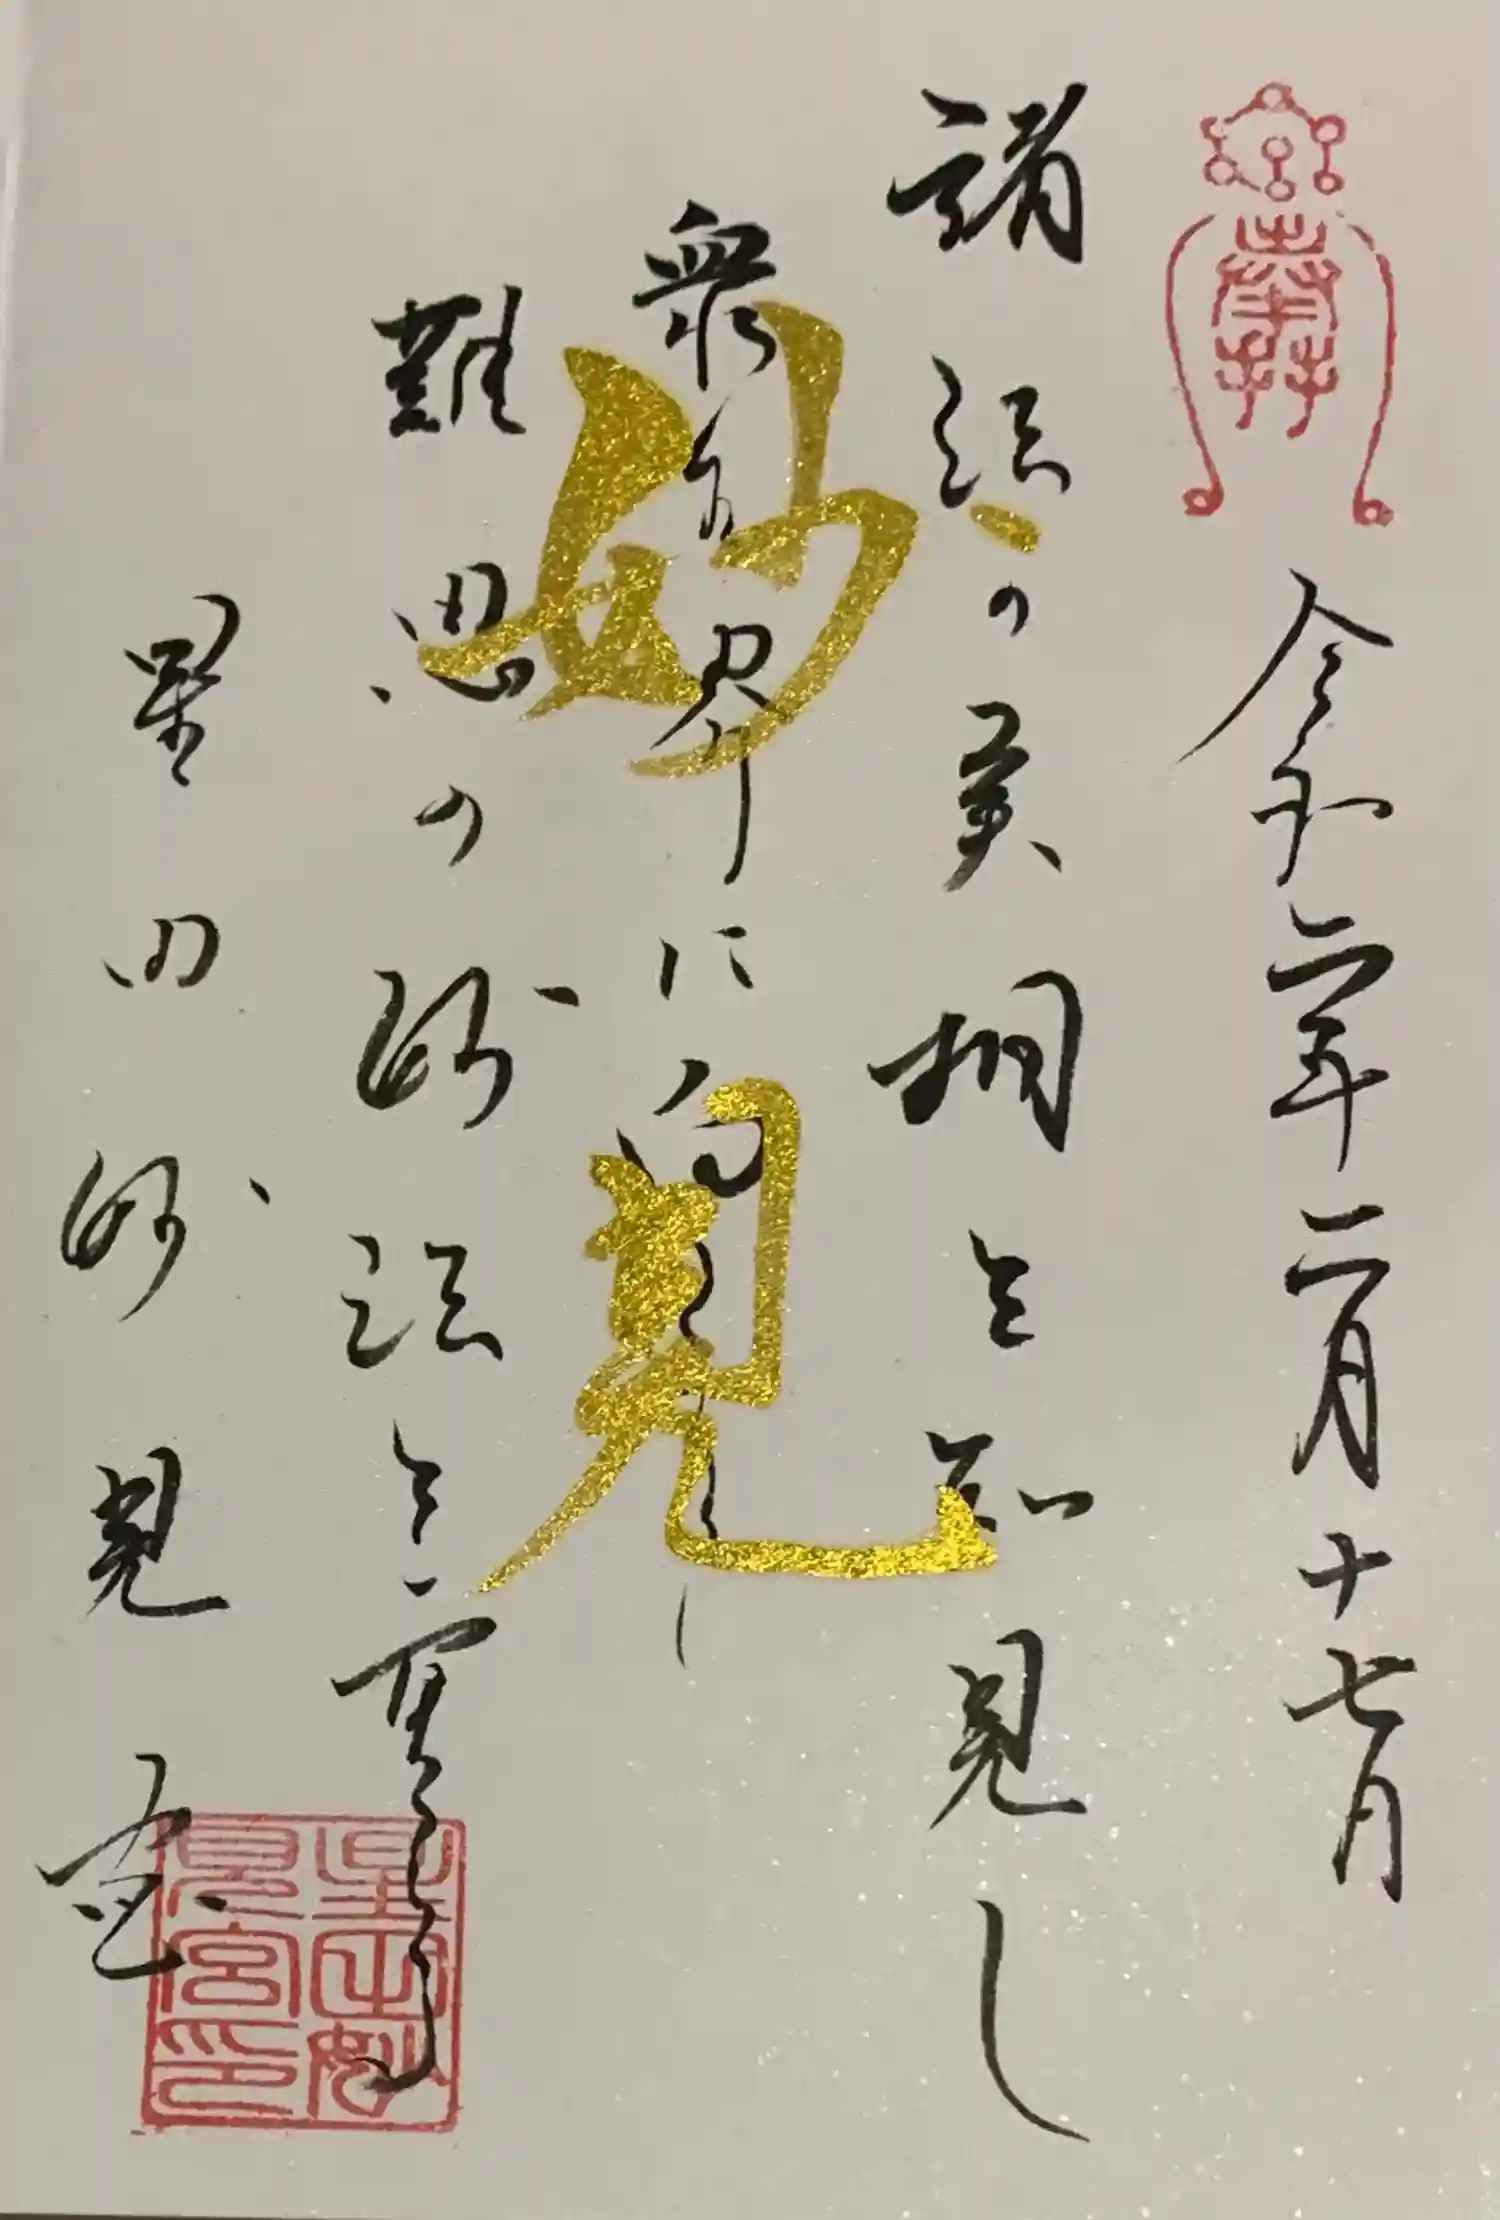 令和二年二月十七月
諸法の実相を知見し
衆 界に向
難思の妙法を
星田妙見宮
妙見
星田妙見宮印